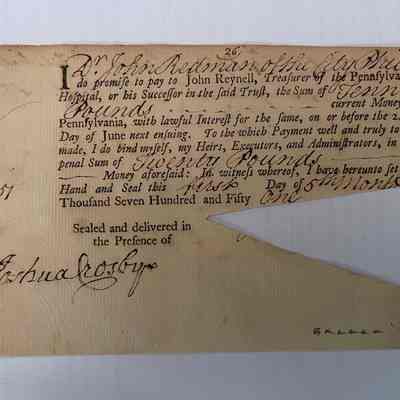 26
I Dr. John Redman of the City Phil
do promise to pay to John Reynell, Treasurer of the Pennsylva
Hospital, or his Successor in the said Trust, the Sum of Tenn
Pounds current Money
Pennsylvania, with lawful Interest for the same, on or before the 2
Day of June next ensuing. To the which Payment well and truly to
made, I do bind myself, my Heirs, Executors, and Administrators, in
penal Sum of Twenty Pounds
Money aforesaid: In witness whereof, I have hereunto set
51 Hand and Seal this first Day of 5th Month
Thousand Seven Hundred and Fifty One
Sealed and delivered in
the Presence of
Joshua Crosby